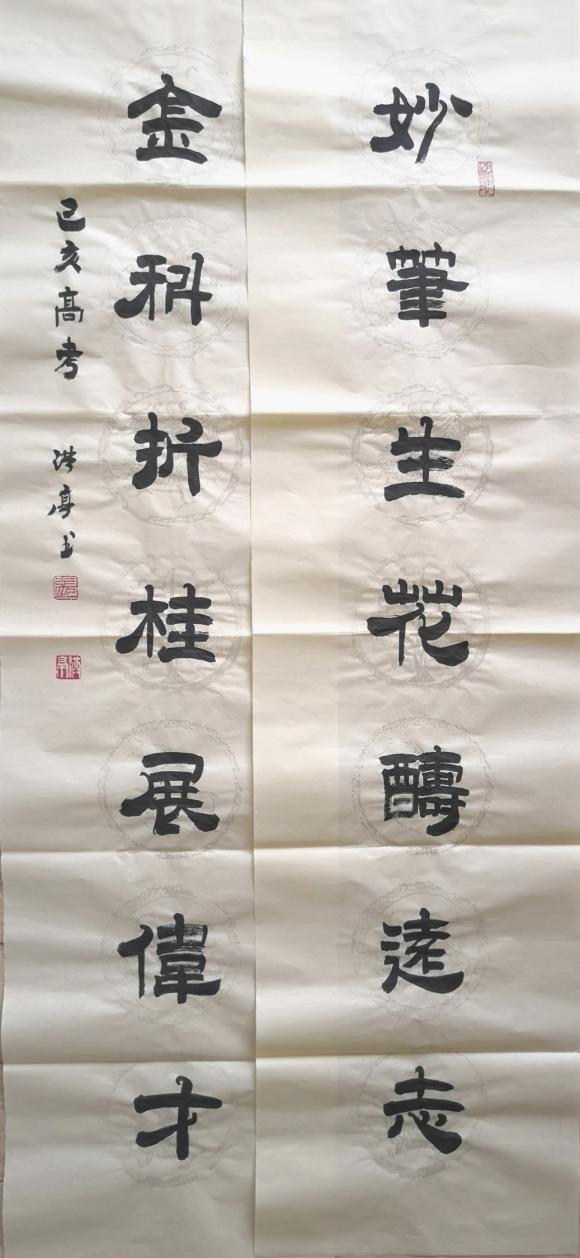 妙筆生花醻遠志
金科折桂展偉才
己亥高考 洪亭书